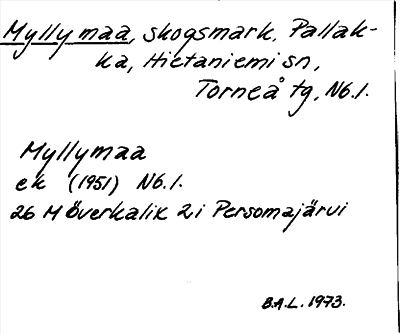 Myllymaa, skogsmark, Pallak-
ka, Hietaniemi sn,
Torneå tg, Nb.l.
Myllymaa
ek (1951) Nb.l.
26 M Överkalix 2i Persomajärvi
B.A.L. 1973.